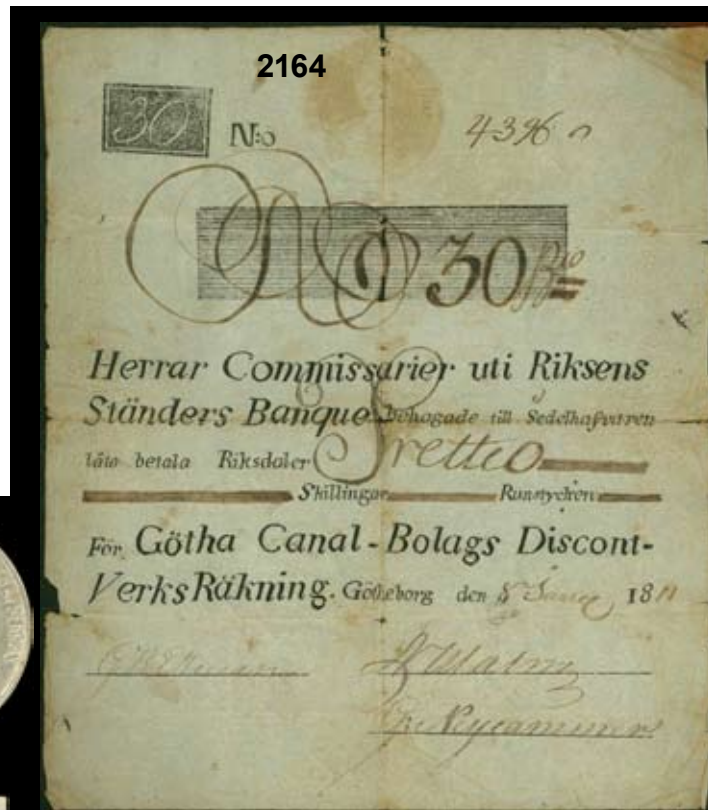 2164
30 N:o 4396
30
Herrar Commissarier uti Riksens
Ständers Banque behagade till Sedelhafvaren
låta betala Riksdaler Trettio
Skillingar Runstycken
För Götha Canal-Bolags Discont-
Verks Räkning. Götheborg den 5 18
Malm
Nycander